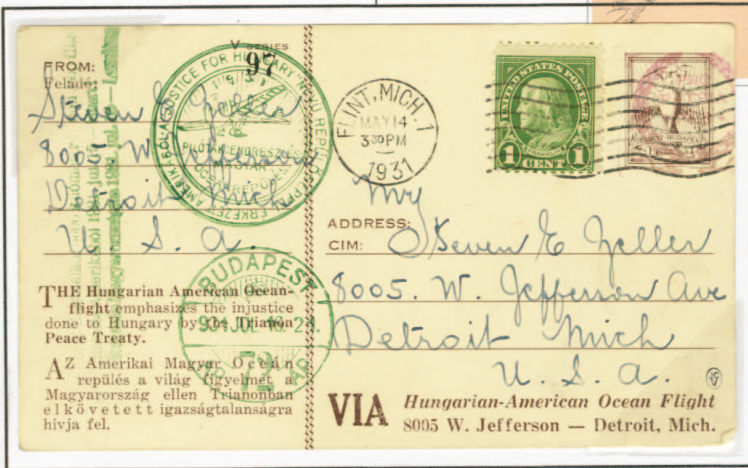 V SERIES
97
FROM:
Feladó:
Steven E Zeller
8005 W Jefferson
Detroit Mich
U. S. A.
JUSTICE FOR HUNGARY
1931
BUDAPEST
72
THE Hungarian American Ocean-
flight emphasizes the injustice
done to Hungary by the Trianon
Peace Treaty.
AZ Amerikai Magyar Oceán
repülés a világ figyelmét a
Magyarország ellen Trianonban
elkövetett igazságtalanságra
hivja fel.
FLINT, MICH. 1
MAY 14
3 30 PM
1931
UNITED STATES POSTAGE
1 CENT 1
My
ADDRESS:
CIM:
Steven E Zeller
8005. W. Jefferson Ave
Detroit Mich
U. S. A.
VIA Hungarian-American Ocean Flight
8005 W. Jefferson — Detroit, Mich.